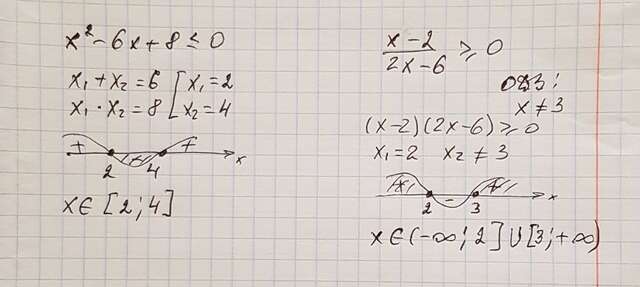 x² - 6x + 8 ≤ 0
x₁ + x₂ = 6 [ x₁ = 2
x₁ · x₂ = 8 [ x₂ = 4
+ - +
2 4 x
x ∈ [2; 4]
x - 2
2x - 6
≥ 0
ОДЗ:
x ≠ 3
(x - 2)(2x - 6) ≥ 0
x₁ = 2 x₂ ≠ 3
+ - +
2 3 x
x ∈ (-∞; 2] ∪ [3; +∞)